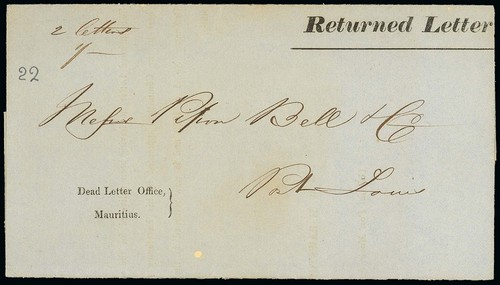 2 letters
Returned Letter
22
Messrs Pipon Bell & Co
Port Louis
Dead Letter Office,
Mauritius.